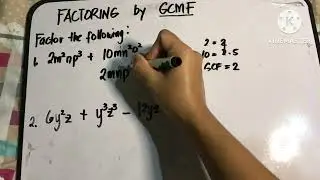 FACTORING by GCMF
Factor the following:
1. 2m²np³ + 10mn²o² 2 = 2
2mnp 10 = 2·5
GCF = 2
2. 6y²z + y³z³ - 12yz
KINEMASTER